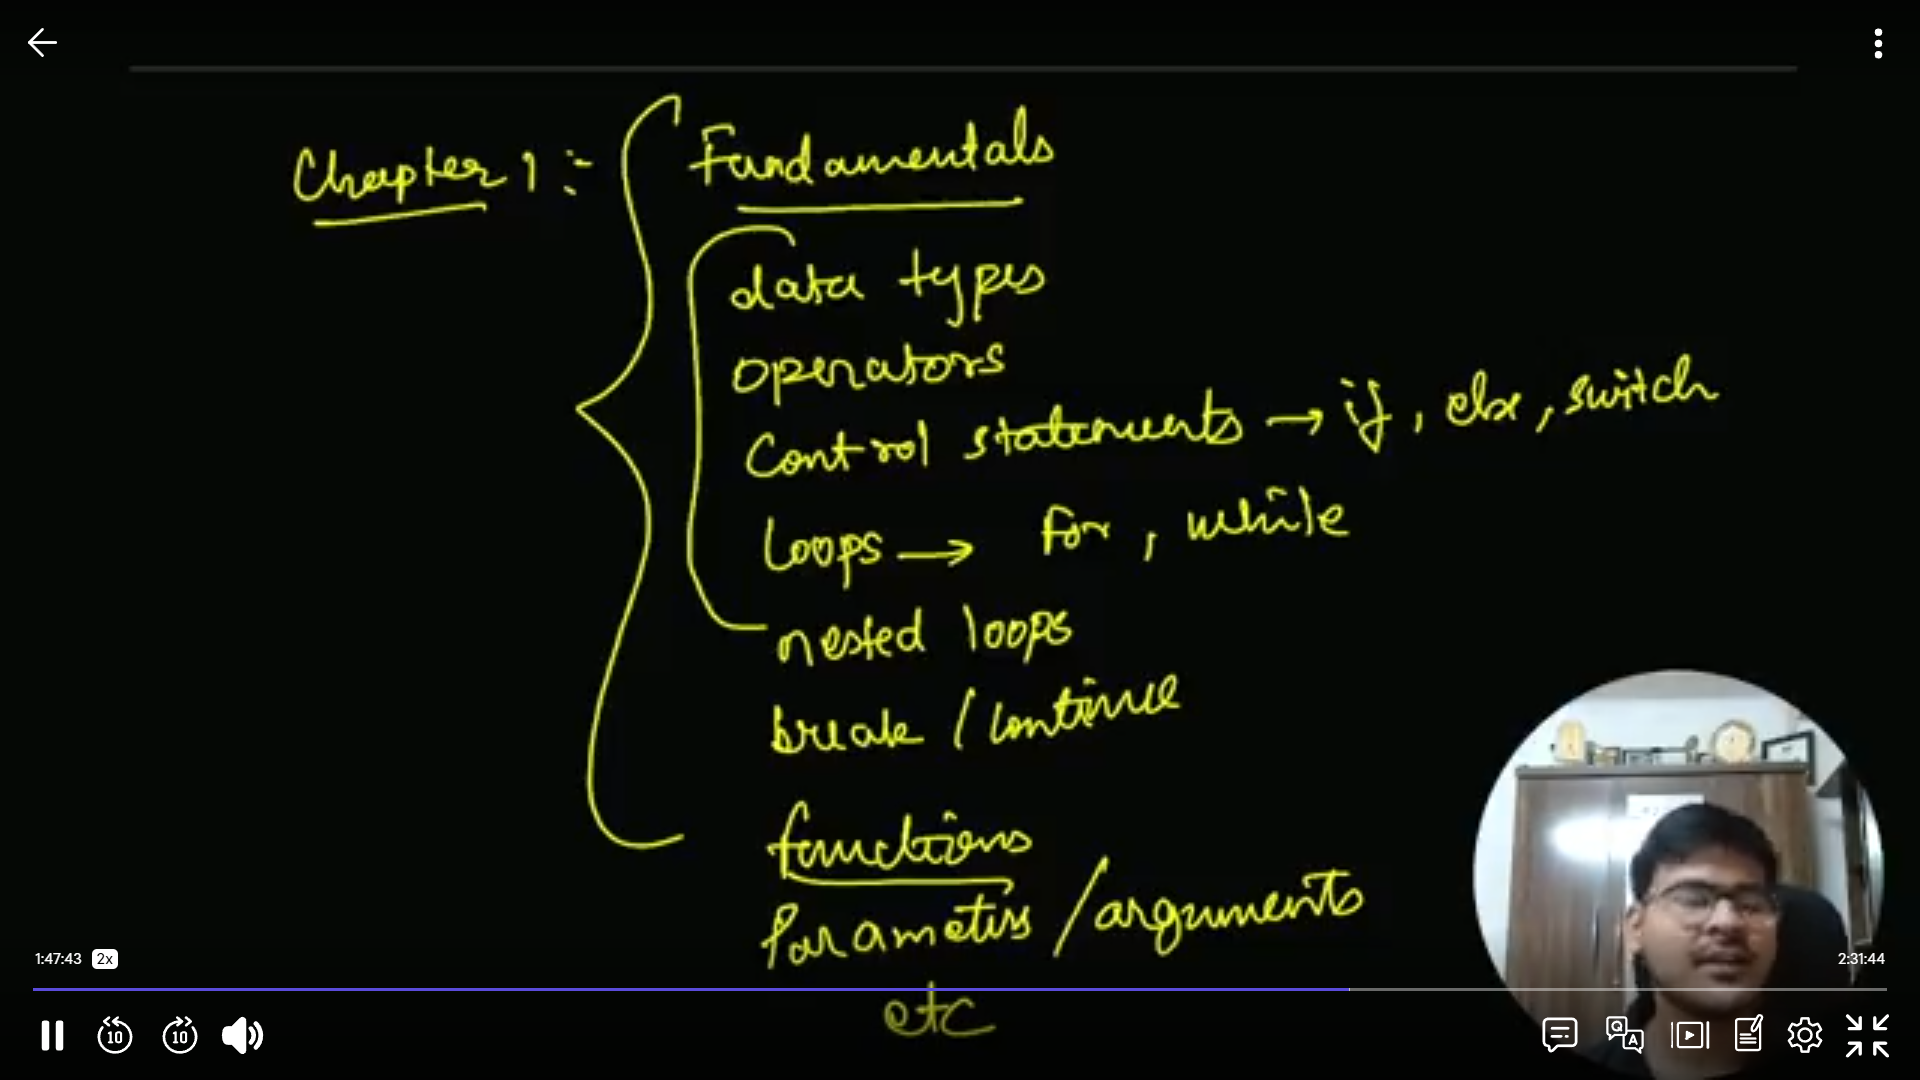 Chapter 1 :-
Fundamentals
data types
operators
Control statements → if, else, switch
loops → for, while
nested loops
break / continue
functions
Parameters / arguments
etc
1:47:43 2x
2:31:44
10 10
Q A